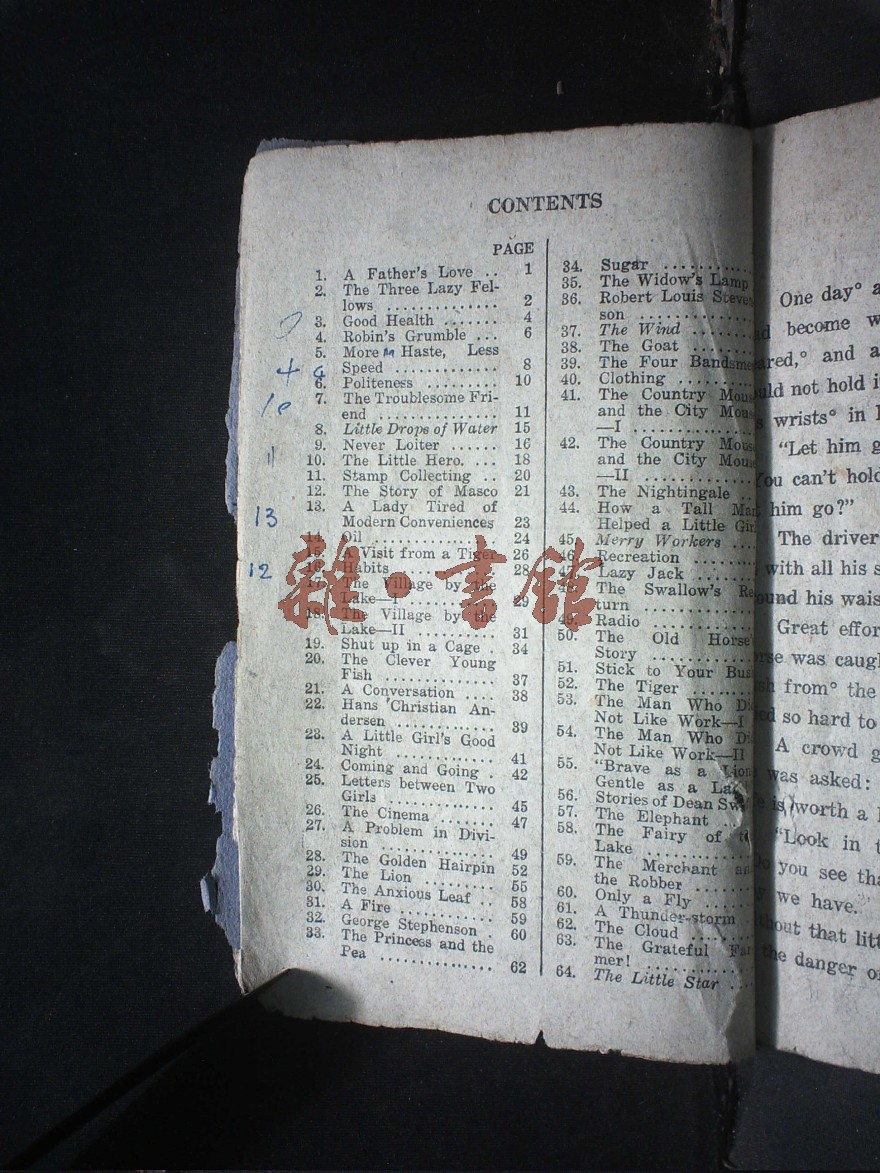 CONTENTS
PAGE
1. A Father's Love .. 1
2. The Three Lazy Fel-
lows ............... 2
3. Good Health ....... 4
4. Robin's Grumble ... 6
5. More Haste, Less
Speed ............. 8
6. Politeness ......... 10
7. The Troublesome Fri-
end ............... 11
8. Little Drops of Water 15
9. Never Loiter ...... 16
10. The Little Hero. ... 18
11. Stamp Collecting .. 20
12. The Story of Masco 21
13. A Lady Tired of
Modern Conveniences 23
14. Oil ................ 24
15. A Visit from a Tiger 26
16. Habits ............. 28
17. The Village by the
Lake—I ........... 29
18. The Village by the
Lake—II .......... 31
19. Shut up in a Cage . 34
20. The Clever Young
Fish ............... 37
21. A Conversation .... 38
22. Hans Christian An-
dersen ............. 39
23. A Little Girl's Good
Night ............. 41
24. Coming and Going . 42
25. Letters between Two
Girls .............. 45
26. The Cinema ........ 47
27. A Problem in Divi-
sion ............... 49
28. The Golden Hairpin 52
29. The Lion .......... 55
30. The Anxious Leaf .. 58
31. A Fire ............. 59
32. George Stephenson . 60
33. The Princess and the
Pea ............... 62
34. Sugar ...........
35. The Widow's Lamp
36. Robert Louis Steven
son .............
37. The Wind ........
38. The Goat ........
39. The Four Bandsme
40. Clothing .........
41. The Country Mous
and the City Mous
—I ..............
42. The Country Mous
and the City Mous
—II .............
43. The Nightingale ..
44. How a Tall Man
Helped a Little Girl
45. Merry Workers ....
46. Recreation .......
47. Lazy Jack ........
48. The Swallow's Re
turn .............
49. Radio ............
50. The Old Horse's
Story ............
51. Stick to Your Bus
52. The Tiger ........
53. The Man Who Did
Not Like Work—I
54. The Man Who Did
Not Like Work—II
55. "Brave as a Lion
Gentle as a La
56. Stories of Dean Sw
57. The Elephant ..
58. The Fairy of t
Lake ............
59. The Merchant an
the Robber .......
60. Only a Fly .......
61. A Thunder-storm .
62. The Cloud ........
63. The Grateful Far
mer! .............
64. The Little Star ...
4
10
11
13
12
雜·書館
One day° a
become w
ared,° and a
uld not hold i
wrists° in
"Let him g
You can't hold
him go?"
The driver
with all his s
ound his wais
Great effor
rse was caugh
from° the
so hard to
A crowd g
was asked:
is worth a
"Look in t
Do you see tha
we have.
hout that litt
the danger o